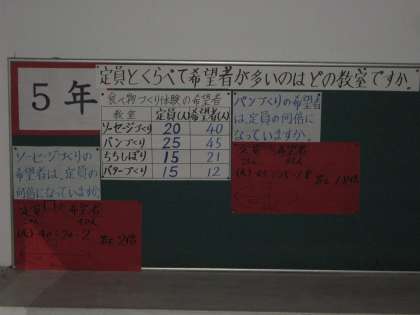 定員とくらべて希望者が多いのはどの教室ですか。
5年
食べ物づくり体験の希望者
教室 定員(人) 希望者(人)
ソーセージづくり 20 40
パンづくり 25 45
ちちしぼり 15 21
バターづくり 15 12
パンづくりの希望者
は、定員の何倍に
なっていますか。
定員 希望者
ソーセージづくりの
希望者は、定員の
何倍になっていますか
定員 希望者
40÷20=2